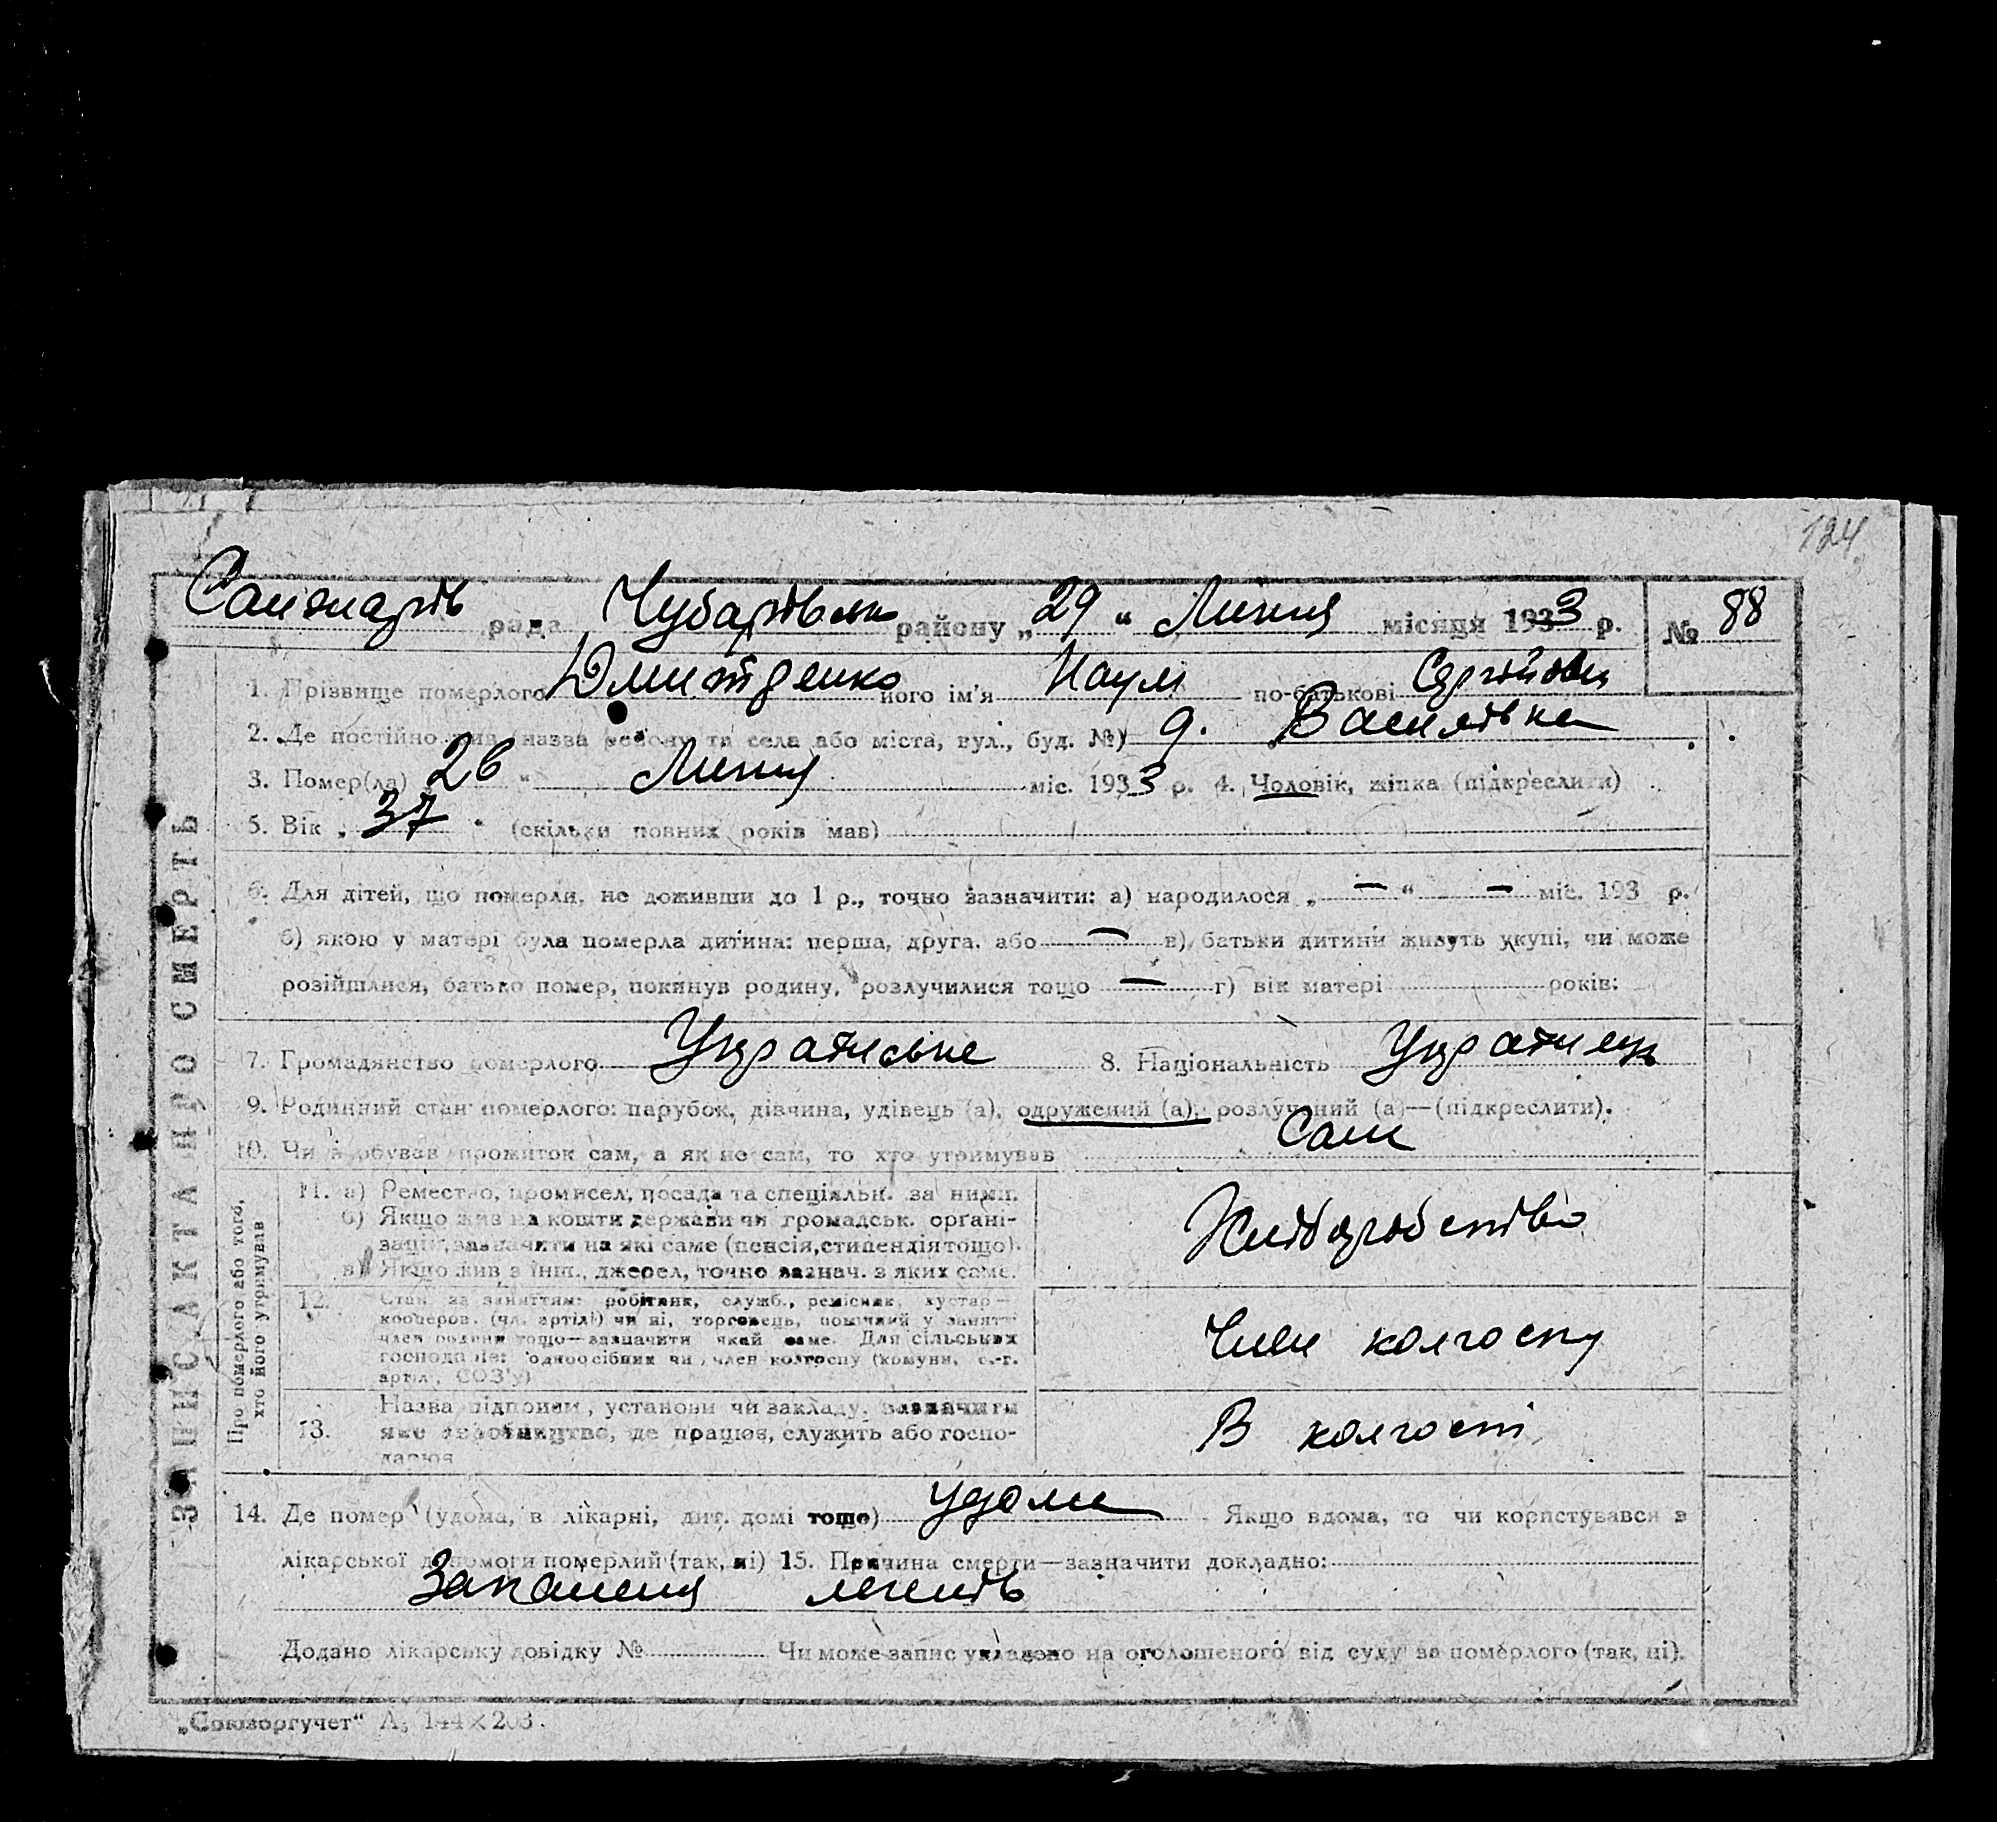 124
Санжарів рада Чубарівськ району „29“ Липня місяця 1933 р. № 88
1. Прізвище померлого Дмитренко його ім'я Наум по-батькові Сергійович
2. Де постійно жив, назва та села або міста, вул., буд. №) д. Василівка
3. Помер(ла) 26 “ Липня міс. 1933 р. 4. Чоловік, жінка (підкреслити)
5. Вік „ 37 “ (скільки повних років мав)
6. Для дітей, що померли, не доживши до 1 р., точно зазначити: а) народилося „ — “ — міс. 193 р.
б) якою у матері була померла дитина: перша, друга, або — в) батьки дитини живуть укупі, чи може
розійшлися, батько помер, покинув родину, розлучилися тощо — г) вік матері років:
7. Громадянство померлого Українське 8. Національність Українець
9. Родинний стан померлого: парубок, дівчина, удівець (а), одружений (а), розлучений (а)—(підкреслити).
10. Чи здобував прожиток сам, а як не сам, то хто утримував Сам
ЗАПИС АКТА ПРО СМЕРТЬ
Про померлого або того, хто його утримував
11. а) Ремество, промисел, посада та спеціяльн. за ними.
б) Якщо жив на кошти держави чи громадськ. органі-
зацій, зазначити на які саме (пенсія, стипендія тощо).
в) Якщо жив з інш., джерел, точно зазнач. з яких саме.
Хліборобство
12. Стан за заняттям: робітник, служб., ремісник, кустар—
кооперов. (чл. артілі) чи ні, торговець, помічний у занятті
член родини тощо—зазначити який саме. Для сільських
господарів: одноосібник чи член колгоспу (комуни, с.-г.
артіл, СОЗ'у)
Член колгоспу
13. Назва підприєм, установи чи закладу, зазначити
яке виробництво, де працює, служить або госпо-
дарює
В колгоспі
14. Де помер (удома, в лікарні, дит. домі тощо) удома Якщо вдома, то чи користувався з
лікарської допомоги померлий (так, ні) 15. Причина смерти—зазначити докладно:
Запалення легенів
Додано лікарську довідку № Чи може запис укладено на оголошеного від суду за померлого (так, ні).
„Союзоргучет“ А₅ 144×203.